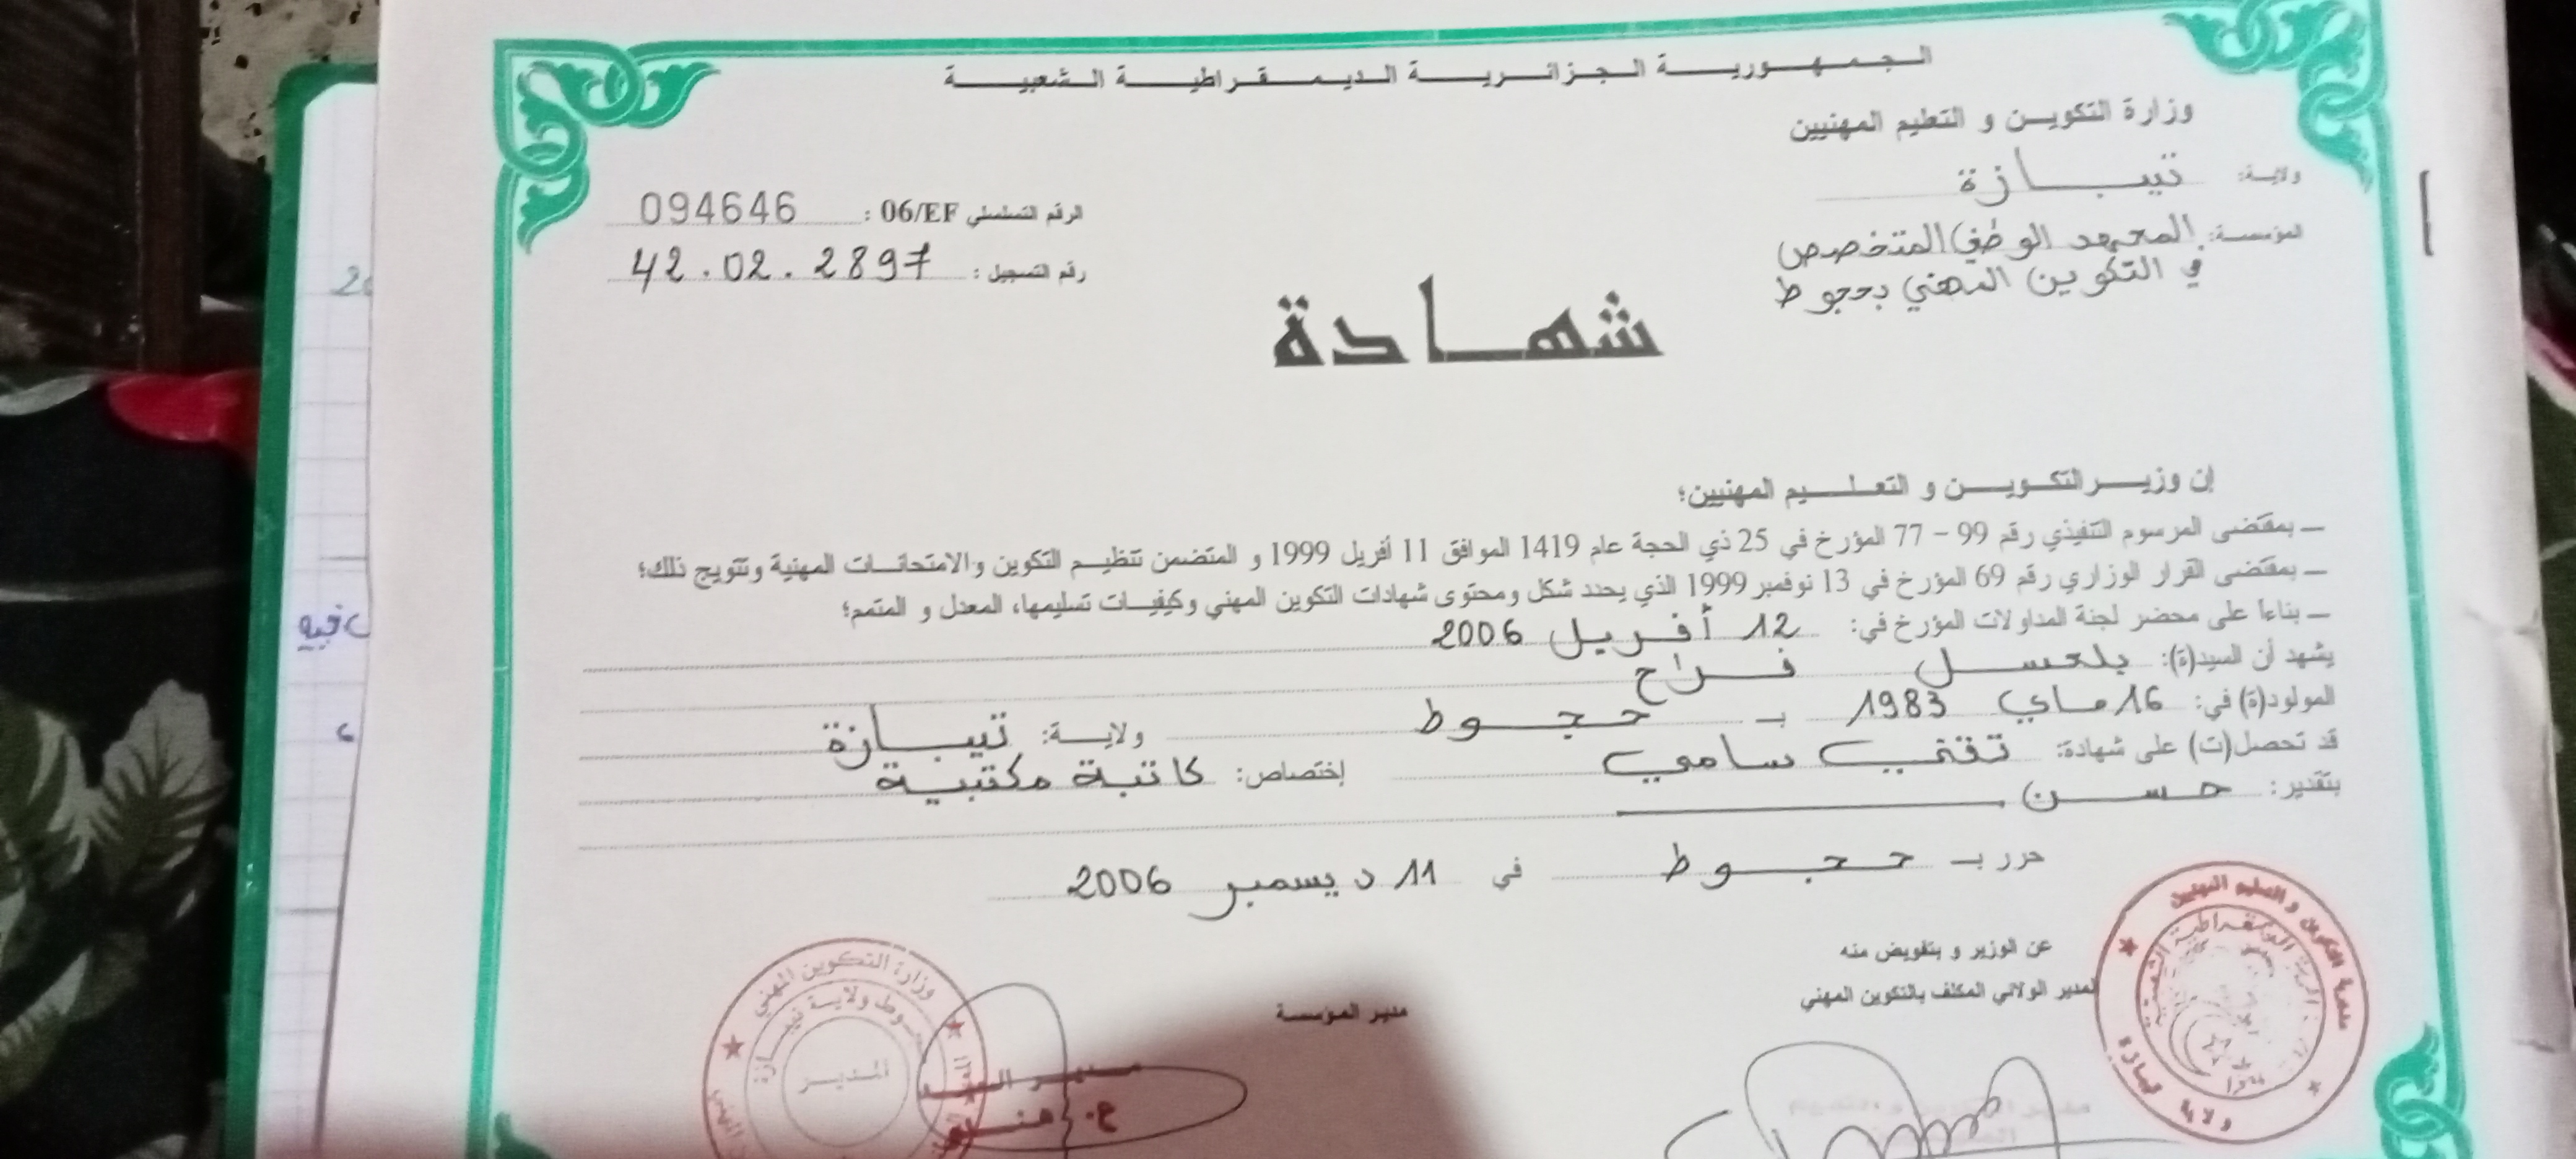 الجمهورية الجزائرية الديمقراطية الشعبية
وزارة التكوين و التعليم المهنيين
ولاية: تيبازة
المؤسسة: المعهد الوطني المتخصص
في التكوين المهني بحجوط
الرقم التسلسلي 06/EF : 094646
رقم التسجيل : 42.02.2897
شهادة
إن وزير التكوين و التعليم المهنيين؛
– بمقتضى المرسوم التنفيذي رقم 99 – 77 المؤرخ في 25 ذي الحجة عام 1419 الموافق 11 أفريل 1999 و المتضمن تنظيم التكوين والامتحانات المهنية وتتويج ذلك؛
– بمقتضى القرار الوزاري رقم 69 المؤرخ في 13 نوفمبر 1999 الذي يحدد شكل ومحتوى شهادات التكوين المهني وكيفيات تسليمها، المعدل و المتمم؛
– بناءا على محضر لجنة المداولات المؤرخ في: 12 أفريل 2006
يشهد أن السيد(ة): بلعسل فراح
المولود(ة) في: 16 ماي 1983 بـ حجوط ولاية: تيبازة
قد تحصل(ت) على شهادة: تقني سامي إختصاص: كاتبة مكتبية
بتقدير: حسن
حرر بـ حجوط في 11 ديسمبر 2006
عن الوزير و بتفويض منه
المدير الولائي المكلف بالتكوين المهني
مدير المؤسسة
وزارة التكوين المهني
المدير
ولاية تيبازة